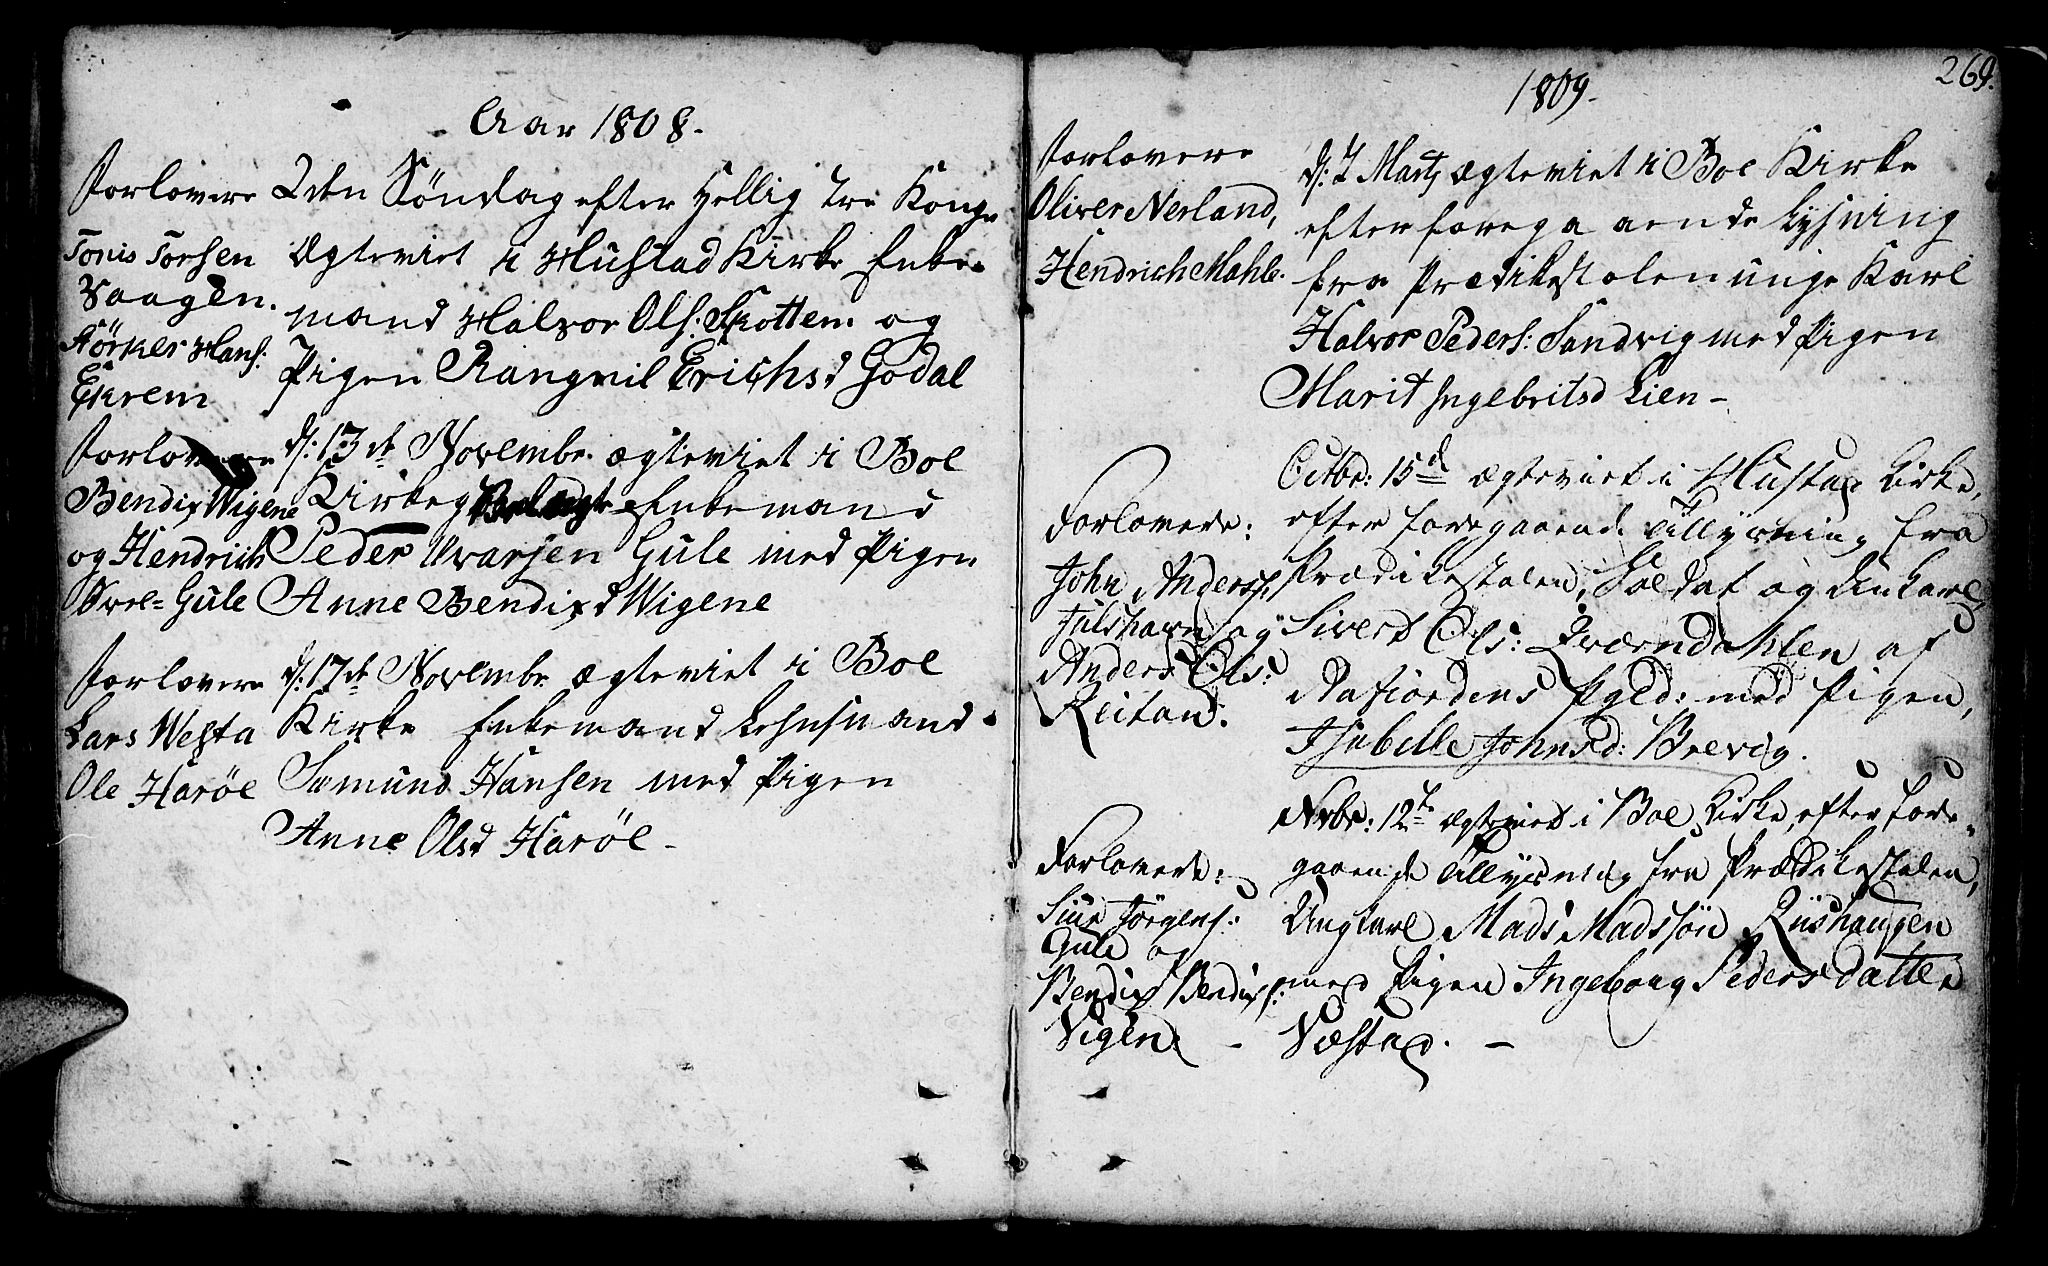 Aar 1808.
Forlovere
Tonis Torsen
Vaagen.
Størker Hans:
Ekrem
2den Söndag efter Hellig tre Konge
Ægteviet i Hustad Kirke Enke-
mand Halvor Ols: Skotten og
Pigen Rangvil Erichsd Godal
Forlovere
Bendix Wigene
og Hendrich
Gule
d: 13de Novembr. ægteviet i Boe
Kirke Enkemand
Peder Iversen Gule med Pigen
Anne Bendixd Wigene
Forlovere
Lars Westa
Ole Harøe
d: 17de Novembr ægteviet i Boe
Kirke Enkemand Lehnsmand
Samund Hansen med Pigen
Anne Olsd Harøe -
269.
1809.
Forlovere
Oliver Nerland,
Hendrich Mahle.
d: 7 Marty ægteviet i Boe Kirke
efter foregaaende Lysning
fra Prædikestolen unge Karl
Halvor Peders: Sandvig med Pigen
Marit Ingebritsd Lien -
Forlovere:
John Anders:
Julshavn og
Anders Ols:
Reitan.
Octbr: 15de Ægteviet i Hustad Kirke,
efter foregaaende Tillysning fra
Prædikestolen, Soldat og Unkarl,
Sivert Ols: Qværndahlen af
Nafiordens Pgld: med Pigen,
Isabelle Johnsd: Brevig.
Forlovere:
Siur Jörgens:
Gule og
Bendix Bendixs:
Vigen. -
Nvbr: 12te Ægteviet i Boe Kirke, efter fore-
gaaende Tillysning fra Prædikestolen,
Ungkarl Mads Madssön Riishaugen
med Pigen Ingeborg Pedersdatter
Væstad. -